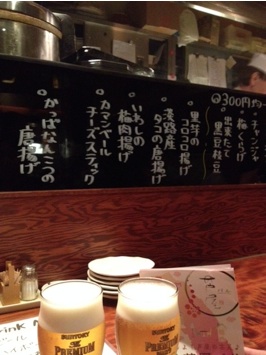 @300円均一
・チャンジャ
・梅くらげ
・出来たて
黒豆枝豆
・里芋の
コロコロ揚げ
・淡路産
タコの唐揚げ
・いわしの
梅肉揚げ
・カマンベール
チーズスティック
・かっぱなんこつの
唐揚げ
SUNTORY
PREMIUM
SUNTORY
PREMIUM